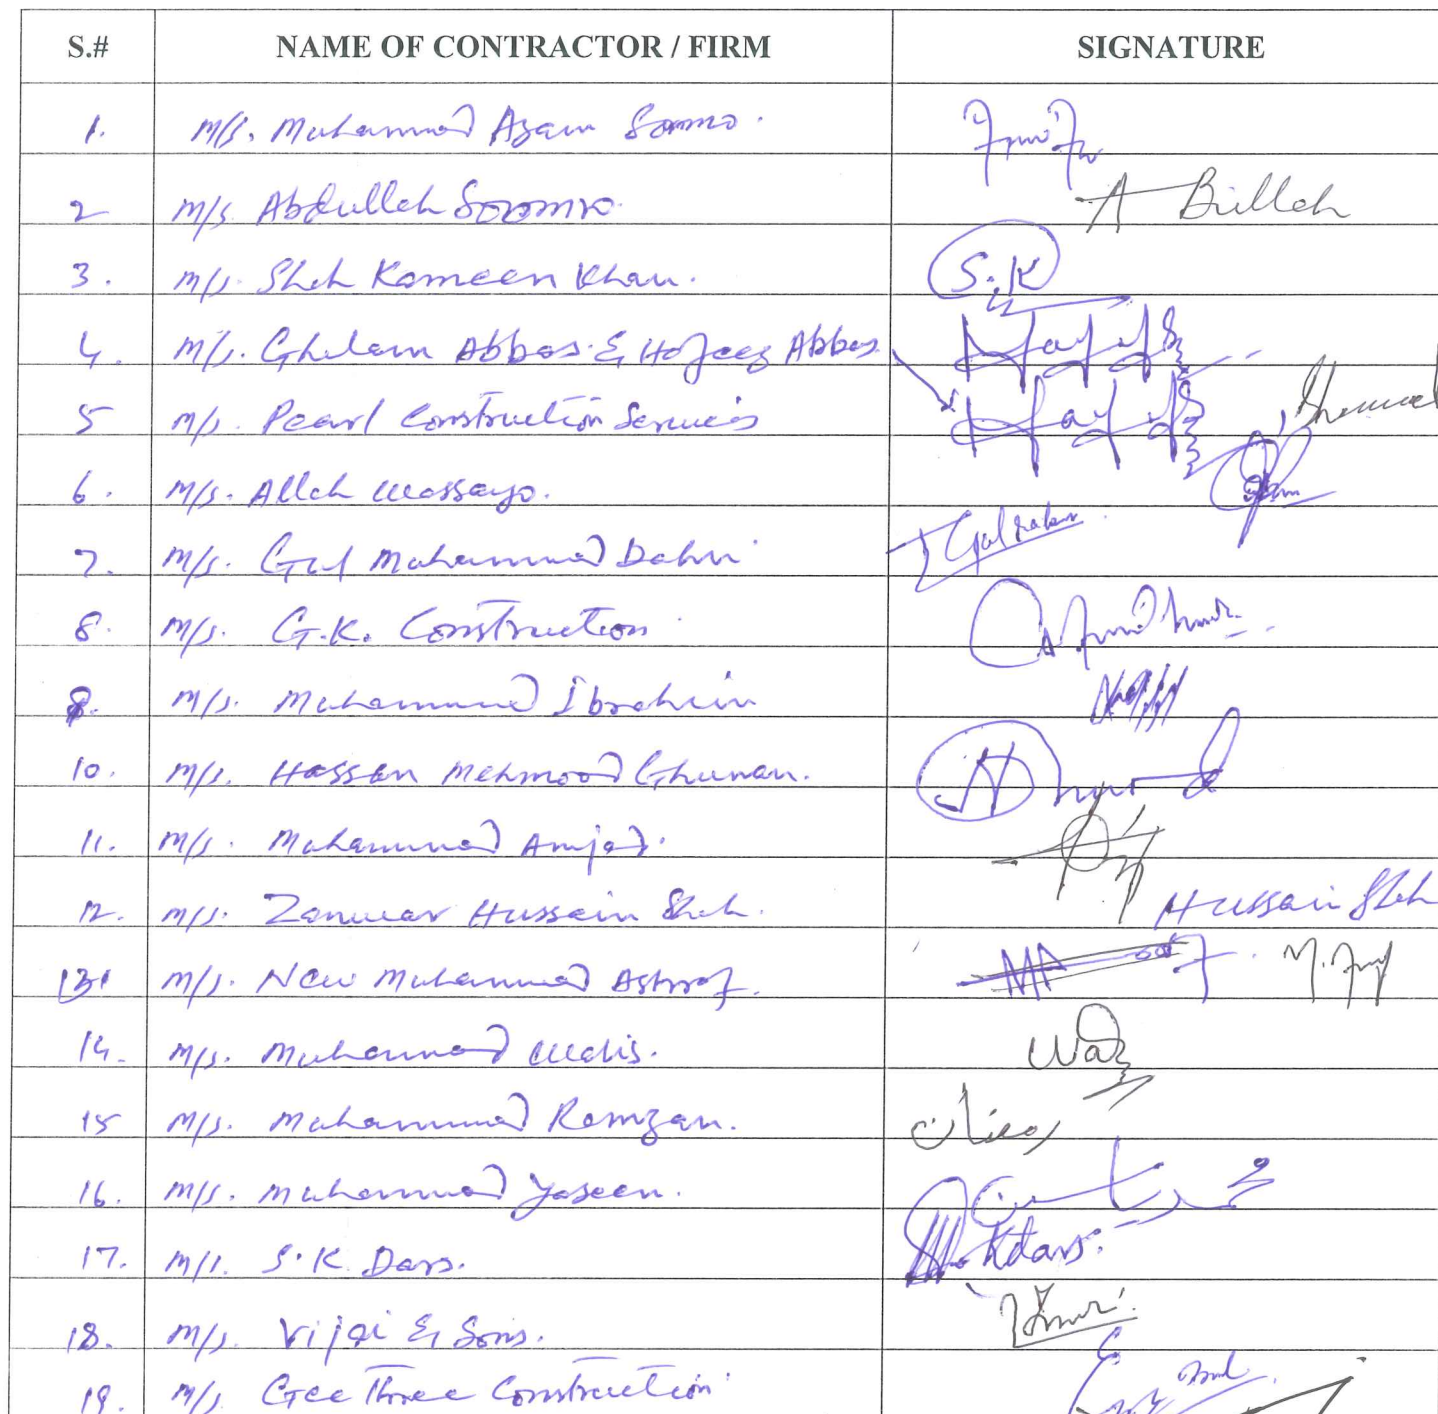 S.# NAME OF CONTRACTOR / FIRM SIGNATURE
1. M/S. Muhammad Azam Soomro.
2 M/S Abdullah Soomro. A Billah
3. M/S. Shah Kameen Khan. S.K
4. M/S. Ghulam Abbas & Hafeez Abbas
5 M/S. Pearl Construction Services
6. M/S. Allah Wassayo.
7. M/S. Gul Muhammad Dahri
8. M/S. G.K. Construction
9. M/S. Muhammad Ibrahim
10. M/S. Hassan Mehmood Ghuman.
11. M/S. Muhammad Amjad.
12. M/S. Zanwar Hussain Shah. Hussain Shah
13. M/S. New Muhammad Ashraf.
14. M/S. Muhammad Waris.
15 M/S. Muhammad Ramzan. رمضان
16. M/S. Muhammad Yaseen. محمد یاسین
17. M/S. S.K. Dars.
18. M/S. Vijai & Sons.
19. M/S Gee Three Construction